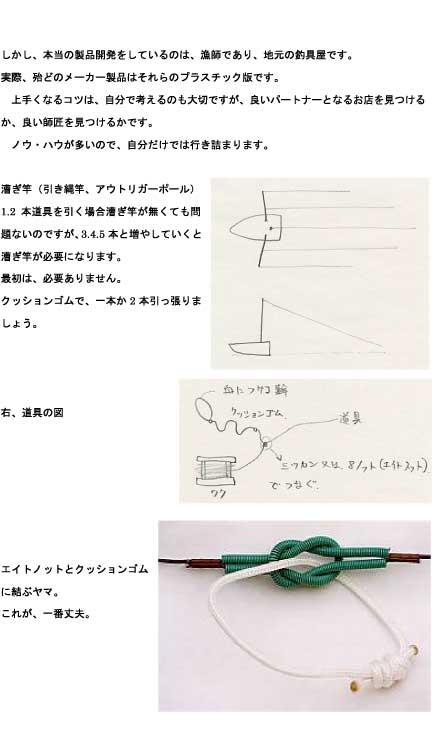 しかし、本当の製品開発をしているのは、漁師であり、地元の釣具屋です。
実際、殆どのメーカー製品はそれらのプラスチック版です。
　上手くなるコツは、自分で考えるのも大切ですが、良いパートナーとなるお店を見つける
か、良い師匠を見つけるかです。
　ノウ・ハウが多いので、自分だけでは行き詰まります。
漕ぎ竿（引き縄竿、アウトリガーポール）
1.2 本道具を引く場合漕ぎ竿が無くても問
題ないのですが、3.4.5 本と増やしていくと
漕ぎ竿が必要になります。
最初は、必要ありません。
クッションゴムで、一本か 2 本引っ張りま
しょう。
右、道具の図
につける輪
クッションゴム
道具
三ツカン又は、8ノット(エイトノット)
でつなぐ
ワク
エイトノットとクッションゴム
に結ぶヤマ。
これが、一番丈夫。